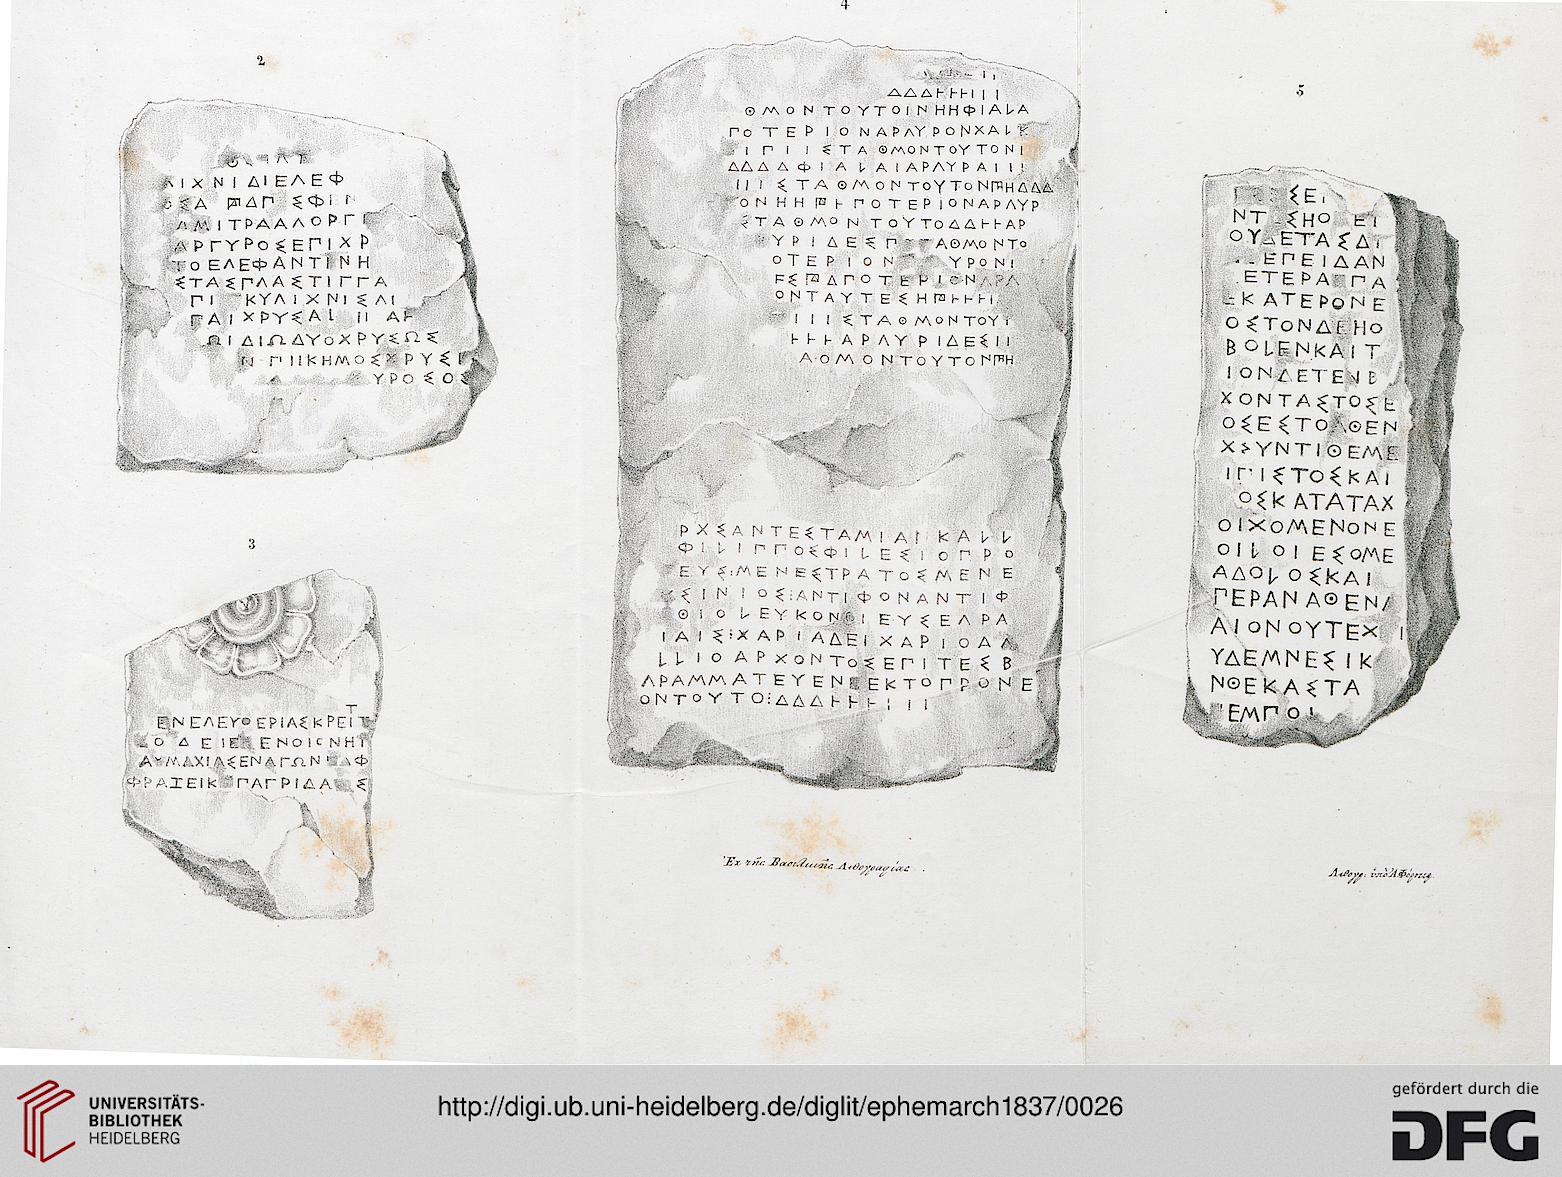 2
ΙΧΝΙΔΙΕΛΕΦ
ΑΜΙΤΡΑΑΛΟΡΓΓ
ΑΡΓΥΡΟΣΕΠΙΧΡ
ΤΟΕΛΕΦΑΝΤΙΝΗ
ΣΤΑΣΓΛΑΣΤΙΓΓΑ
ΓΙ ΚΥΛΙΧΝΙΣΛΙ
ΓΑΙΧΡΥΣΑΙ
ΩΙΔΙΩΔΥΟΧΡΥΣΩΣ
ΚΗΜΟΣΧΡΥΣΙ
ΥΡΟΣΟΣ
3
ΕΝΕΛΕΥΘΕΡΙΑΣΚΡΕΙΤ
ΑΥΜΑΧΙΑΣΕΝΑΓΩΝ ΑΦ
ΦΡΑΞΕΙΚ ΠΑΓΡΙΔΑ Σ
4
ΔΔΔͰͰͰΙΙΙ
ΘΜΟΝΤΟΥΤΟΙΝΗΗΦΙΑLΑ
ΓΟΤΕΡΙΟΝΑΡΛΥΡΟΝΧΑLΚ
ΣΤΑΘΜΟΝΤΟΥΤΟΝΙ
ΔΔΔΔΦΙΑLΑΙΑΡΛΥΡΑΙΙΙ
ΙΙΙΣΤΑΘΜΟΝΤΟΥΤΟΝ𐅅ΗΔΔΔ
ΟΝΗΗ𐅄ͰΓΟΤΕΡΙΟΝΑΡΛΥΡ
ΣΤΑΘΜΟΝΤΟΥΤΟΔΔͰͰΑΡ
ΥΡΙΔΕΣΓ ΑΘΜΟΝΤΟ
ΟΤΕΡΙΟΝ ΥΡΟΝΙ
ΕΣ𐅄ΔΓΟΤΕΡΙΟΝΑΡΛ
ΟΝΤΑΥΤΕΣΗ𐅄ͰͰͰΙ
ΙΙΙΣΤΑΘΜΟΝΤΟΥΤ
ͰͰͰΑΡΛΥΡΙΔΕΣΙΙ
ΑΘΜΟΝΤΟΥΤΟΝ𐅅Η
ΡΧΣΑΝΤΕΣΤΑΜΙΑΙ ΚΑLL
ΦΙLΙΓΓΟΣΦΙLΕΣΙΟΓΡΟ
ΕΥΣ:ΜΕΝΕΣΤΡΑΤΟΣΜΕΝΕ
ΣΙΝΙΟΣ:ΑΝΤΙΦΟΝΑΝΤΙΦ
ΘΙΟLΕΥΚΟΝΟΙΕΥΣΕΛΡΑ
ΙΑΙΣ:ΧΑΡΙΑΔΕΙΧΑΡΙΟΔΑ
LLΙΟΑΡΧΟΝΤΟΣΕΓΙΤΕΣΒ
ΛΡΑΜΜΑΤΕΥΕΝ ΕΚΤΟΓΡΟΝΕ
ΟΝΤΟΥΤΟ:ΔΔΔͰͰͰͰΙΙΙ
5
ΣΕΙ
ΝΤ ΣΗΟ ΕΙ
ΟΥ ΕΤΑΣΔΙ
ΕΓΕΙΔΑΝ
ΕΤΕΡΑ ΓΑ
ΕΚΑΤΕΡΟΝΕ
ΟΣΤΟΝΔΕΗΟ
ΒΟLΕΝΚΑΙΤ
ΙΟΝΔΕΤΕΝΒ
ΧΟΝΤΑΣΤΟΣΕ
ΟΣΕΣΤΟ ΘΕΝ
ΧΣΥΝΤΙΘΕΜΕ
ΙΓΙΣΤΟΣΚΑΙ
ΟΣΚΑΤΑΤΑΧ
ΟΙΧΟΜΕΝΟΝΕ
ΟΙLΟΙΕΣΟΜΕ
ΑΔΟLΟΣΚΑΙ
ΓΕΡΑΝΑΘΕΝ
ΑΙΟΝΟΥΤΕΧ Ι
ΥΔΕΜΝΕΣΙΚ
ΝΘΕΚΑΣΤΑ
ΕΜΓΟΙ
Ἐκ τῆς Βασιλικῆς Λιθογραφίας.
UNIVERSITÄTS-
BIBLIOTHEK
HEIDELBERG
http://digi.ub.uni-heidelberg.de/diglit/ephemarch1837/0026
gefördert durch die
DFG